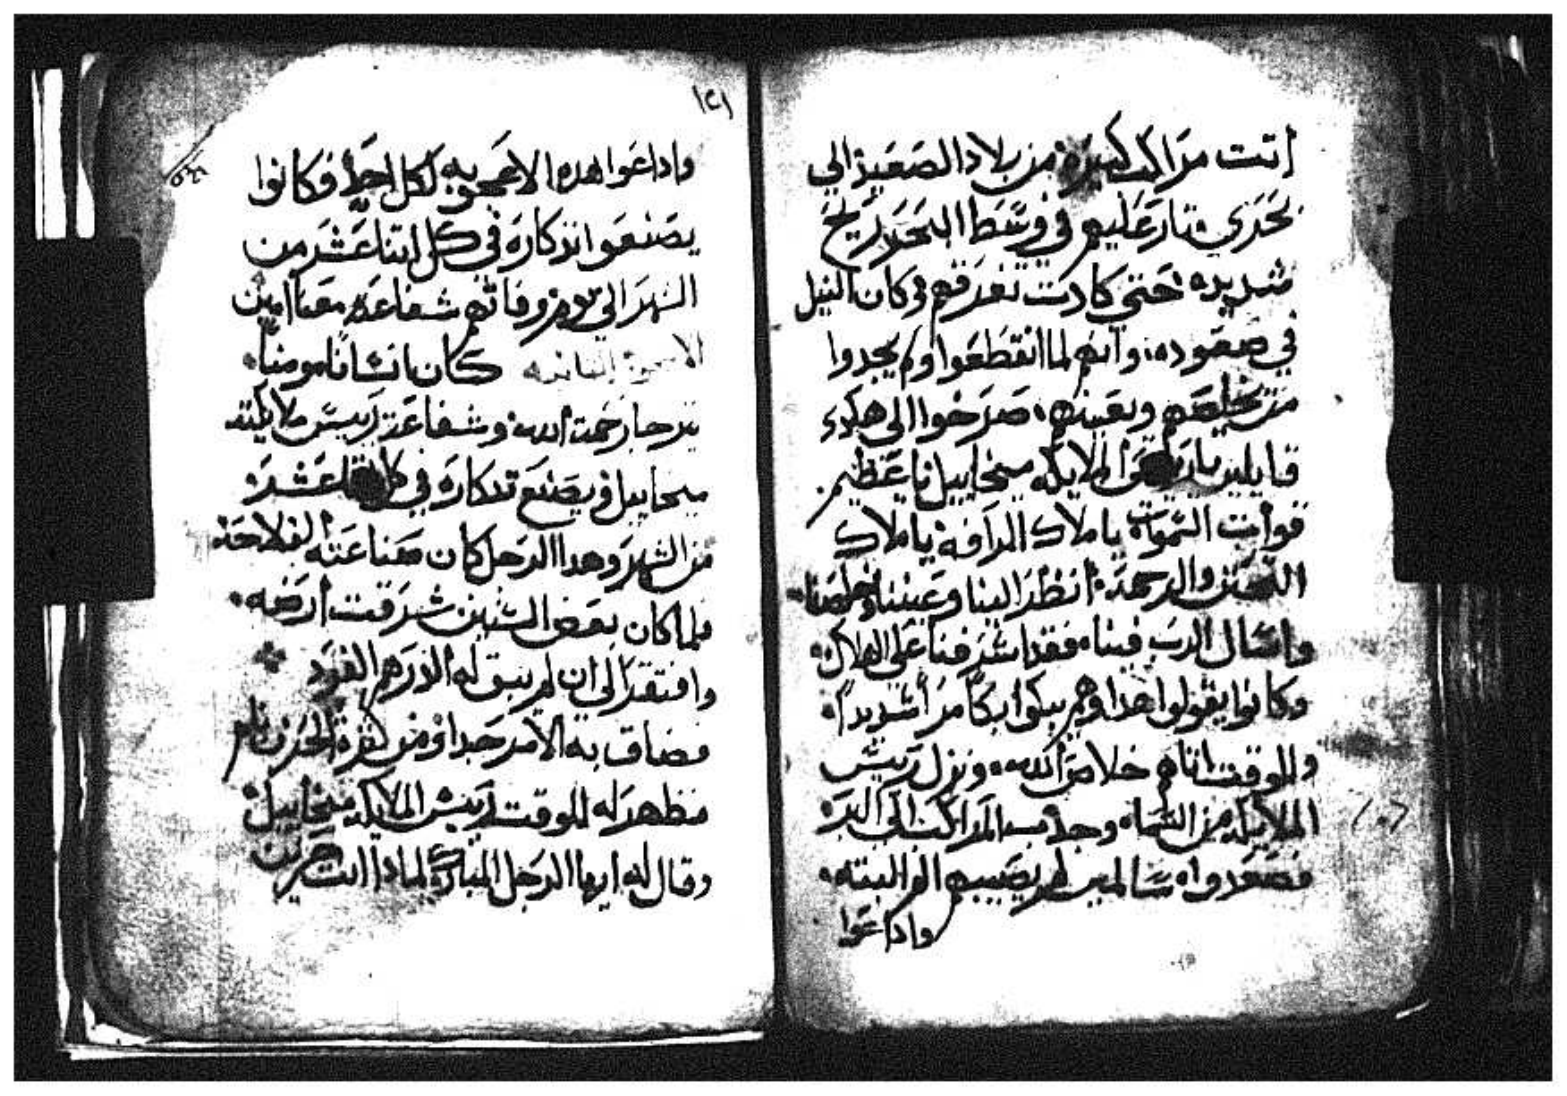 اتت مراكب كبيره من بلاد الصعيد الي
بحري فتار عليهم في وسط البحر ريح
شديده حتي كادت تغرقهم وكان النيل
في صعوده وانهم لما انقطعوا ولم يجدوا
من يخلصهم ويعينهم صرخوا الي هكدي
قايلين يا الملايكه ميخاييل يا عظيم
قوات السموات يا ملاك الرافه يا ملاك
التحنن والرحمة انظر الينا وعيننا وخلصنا
واسال الرب فينا فقد اشرفنا علي الهلاك
وكانوا يقولوا هدا وهم يبكوا بكا مرا شديدا
وللوقت اتاهم خلاص الله ونزل رييس
الملايكه من السماء وجدب المراكب الي البر
فصعدوا سالمين لم يصيبهم الم البته
واداعوا
١٢١
واداعوا هده الاعجوبه لكل احد فكانوا
يصنعوا تدكاره في كل اتنا عشر من
الشهر الي يوم وفاتهم شفاعته معنا امين
كان انسانا مومنا
يترجا رحمة الله وشفاعة رييس ملايكته
ميخاييل ويصنع تدكاره في عشر
من الشهر وهدا الرجل كان صناعته الفلاحه
فلما كان بعض السنين شرقت ارضه
وافتقر الي ان لم يتبق له الدرهم الفرد
فضاق به الامر جدا ومن كترة الحزن نام
فظهر له للوقت رييس الملايكه ميخاييل
وقال له ايها الرجل المبارك لمادا انت حزين